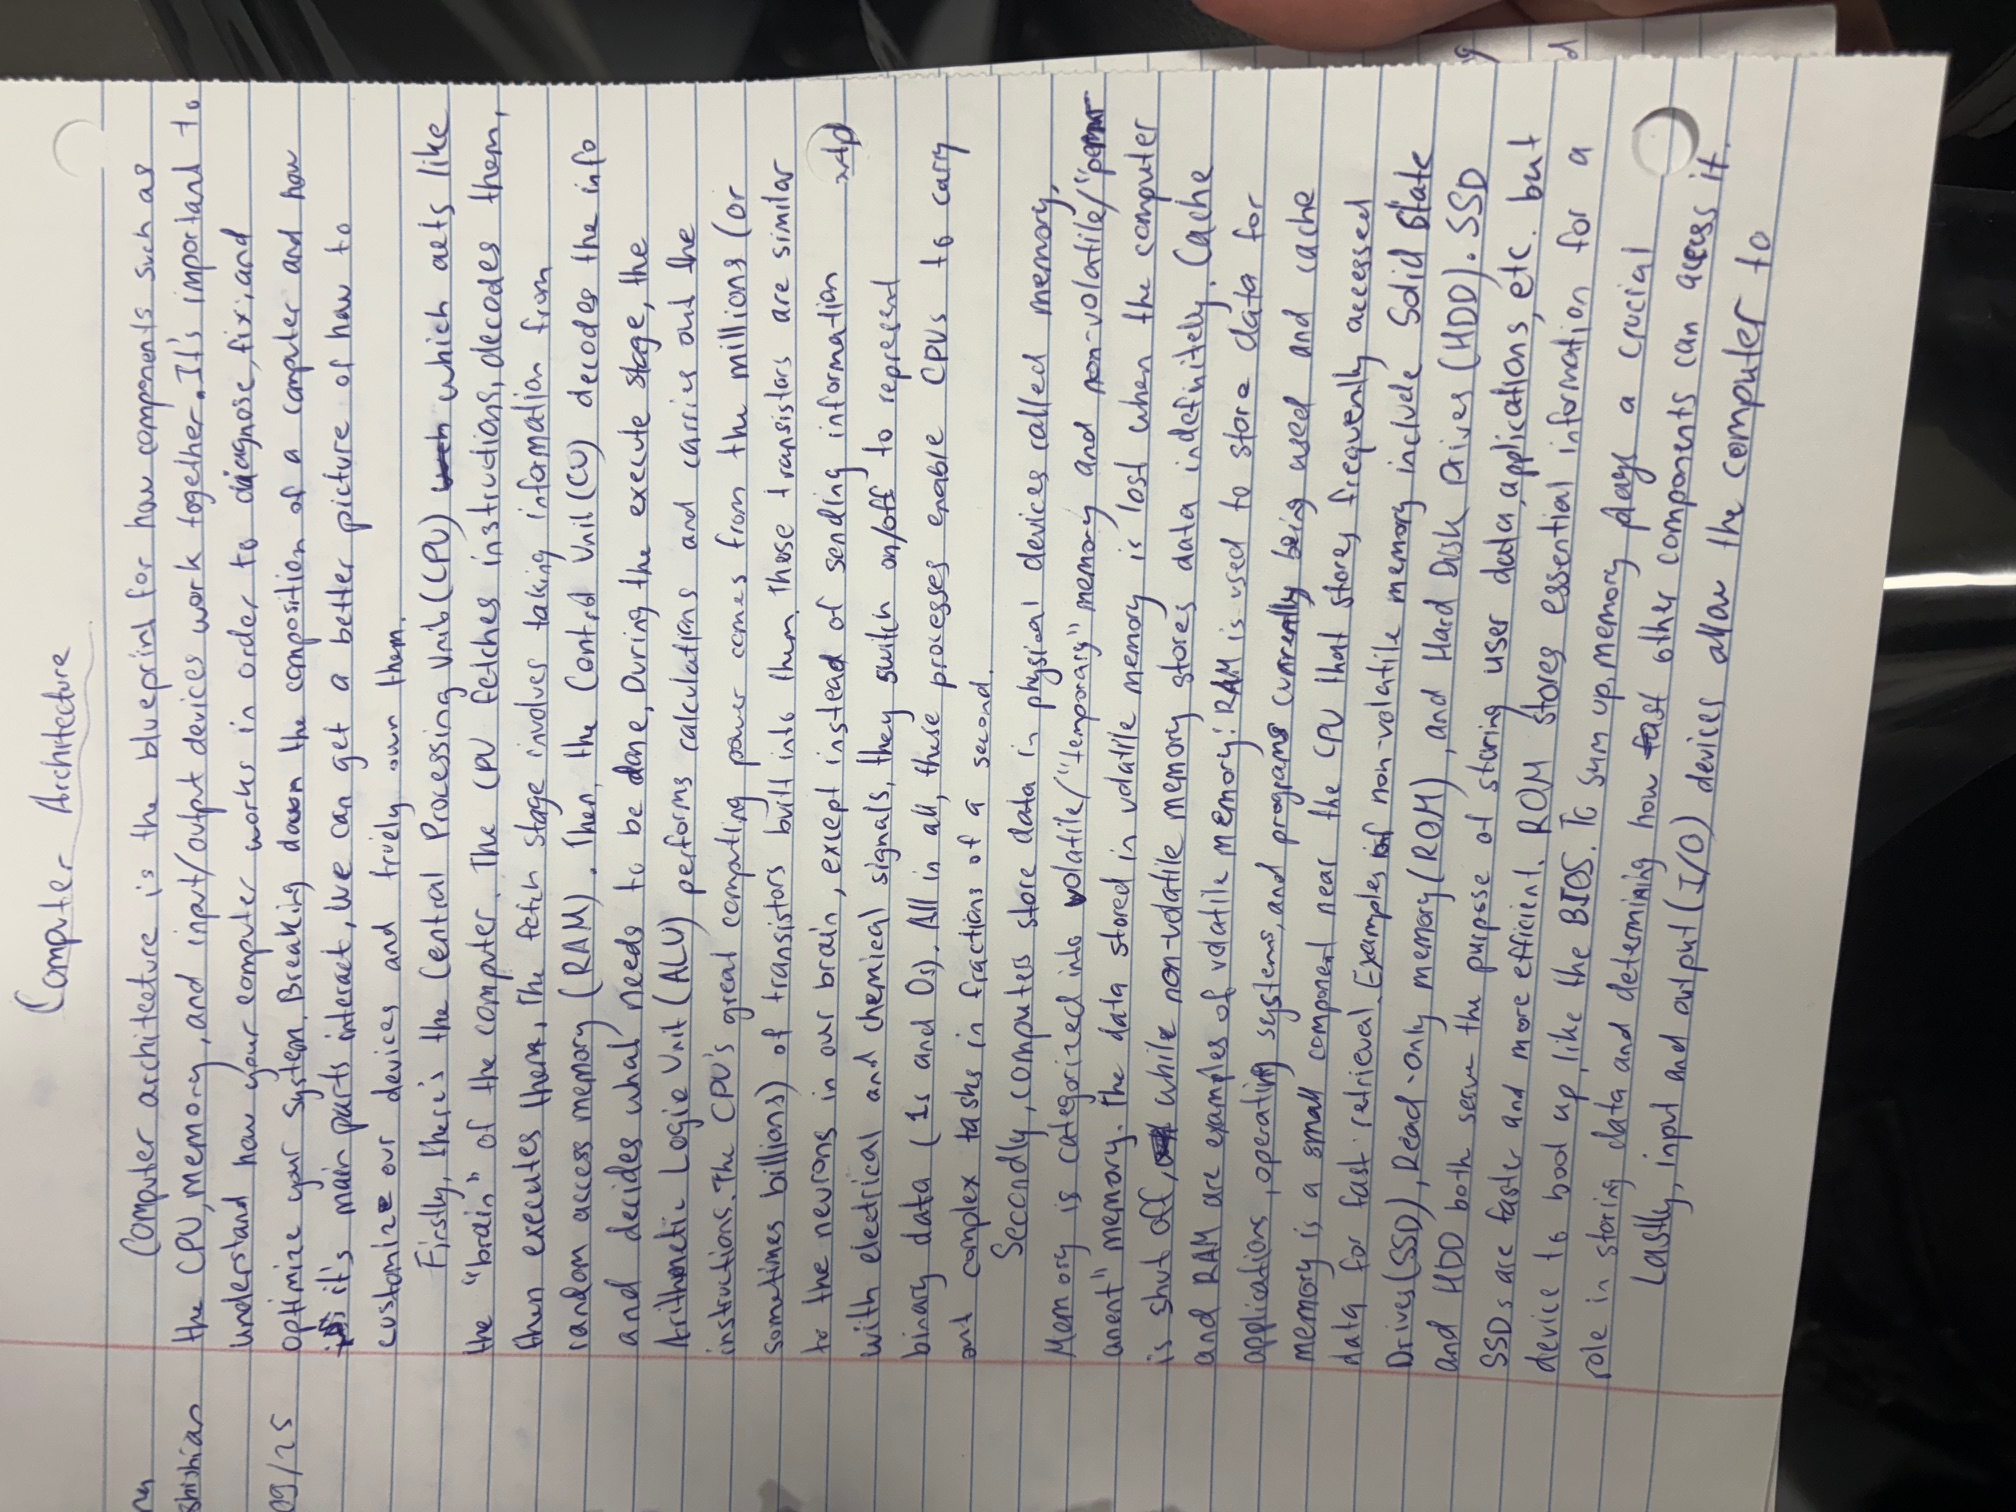 Computer Architecture
Computer architecture is the blueprint for how components such as
the CPU, memory, and input/output devices work together. It's important to
understand how your computer works in order to diagnose, fix, and
optimize your system. Breaking down the composition of a computer and how
it's main parts interact, we can get a better picture of how to
customize our devices and truely own them.
Firstly, there's the Central Processing Unit (CPU) which acts like
the "brain" of the computer. The CPU fetches instructions, decodes them,
then executes them. The fetch stage involves taking information from
random access memory (RAM). Then, the Control Unit (CU) decodes the info
and decides what needs to be done. During the execute stage, the
Arithmetic Logic Unit (ALU) performs calculations and carries out the
instructions. The CPU's great computing power comes from the millions (or
sometimes billions) of transistors built into them. These transistors are similar
to the neurons in our brain, except instead of sending information
with electrical and chemical signals, they switch on/off to represent
binary data (1s and 0s). All in all, these processes enable CPUs to carry
out complex tasks in fractions of a second.
Secondly, computers store data in physical devices called memory.
Memory is categorized into volatile/"temporary" memory and non-volatile/"perm
anent" memory. The data stored in volatile memory is lost when the computer
is shut off, while non-volatile memory stores data indefinitely. Cache
and RAM are examples of volatile memory: RAM is used to store data for
applications, operating systems, and programs currently being used and cache
memory is a small component near the CPU that stores frequently accessed
data for fast retrieval. Examples of non-volatile memory include Solid State
Drives (SSD), Read-only memory (ROM), and Hard Disk Drives (HDD). SSD
and HDD both serve the purpose of storing user data, applications, etc. but
SSDs are faster and more efficient. ROM stores essential information for a
device to boot up, like the BIOS. To sum up, memory plays a crucial
role in storing data and determining how fast other components can access it.
Lastly, input and output (I/O) devices allow the computer to
shishian
09/25